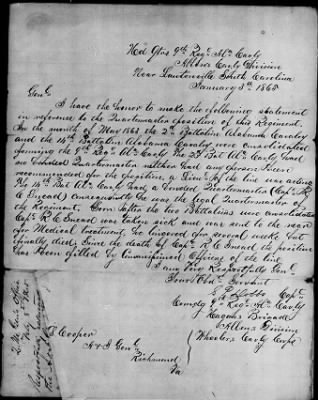 Hd Qrs 9th Regt Ala Cavly
Allens Cavly Division
Near Lawtonville South Carolina
January 8th 1865
Genl
I have the honor to make the following statement
in reference to the Quartermaster position of this Regiment.
In the month of May 1863 the 2nd Battalion Alabama Cavalry
and the 14th Battalion Alabama Cavalry were consolidated
forming the 9th Regt Ala Cavly. The 2nd Bat Ala Cavly had
no Bonded Quartermaster neither had any person been
recommended for the position, a Lieut of the line was acting
The 14th Bat Ala Cavly had a Bonded Quartermaster (Capt
R C Snead) consequently he was the legal Quartermaster of
the Regiment. Soon after the two Battalions were consolidated
Capt R C Snead was taken sick and was sent to the rear
for Medical treatment, he lingered for several weeks but
finally died. Since the death of Capt R C Snead the position
has been filled by Officers of the line
I am Very Respectfully Genl
Your Obt Servant
Capt
Comdg 9th Regt Ala Cavly
Hagans Brigade
Allens Division
Wheelers Cavly Corps
S Cooper
A & I Genl
Richmond
Va